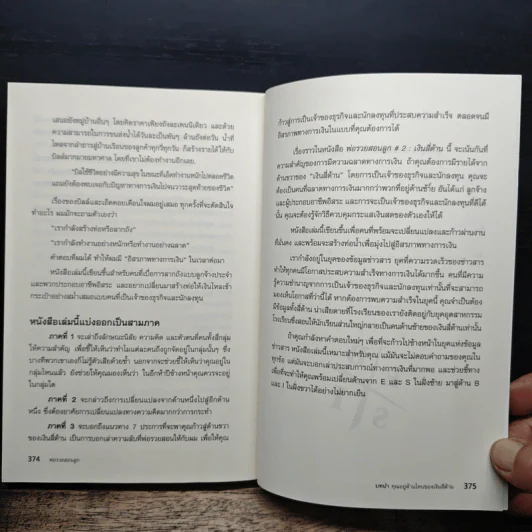 เสนอยังหมู่บ้านอื่นๆ โดยคิดราคาเพียงถังละเพนนีเดียว และด้วย
ความสามารถในการขนส่งน้ำได้วันละเป็นพันๆ ล้านถังต่อวัน น้ำที่
ไหลจากลำธารสู่บ้านเรือนของลูกค้าทุกวี่ทุกวัน ก็สร้างรายได้ให้กับ
บิลล์มากมายมหาศาล โดยที่เขาไม่ต้องทำงานอีกเลย
"บิลใช้ชีวิตอย่างมีความสุข ในขณะที่เอ็ดทำงานหนักไปตลอดชีวิต
แถมยังต้องพบเจอกับปัญหาทางการเงินไปจนวาระสุดท้ายของชีวิต"
เรื่องของบิลล์และเอ็ดคอยเตือนใจผมอยู่เสมอ ทุกครั้งที่จะตัดสินใจ
ทำอะไร ผมมักจะถามตัวเองว่า
"เรากำลังสร้างท่อหรือลากถัง"
"เรากำลังทำงานอย่างหนักหรือทำงานอย่างฉลาด"
คำตอบที่ผมได้ ทำให้ผมมี "อิสรภาพทางการเงิน" ในเวลาต่อมา
หนังสือเล่มนี้เขียนขึ้นสำหรับคนที่เบื่อการลากถังแบบลูกจ้างประจำ
และพวกประกอบอาชีพอิสระ และอยากเปลี่ยนมาสร้างท่อให้เงินไหลเข้า
กระเป๋าอย่างสม่ำเสมอแบบคนที่เป็นเจ้าของธุรกิจและนักลงทุน
หนังสือเล่มนี้แบ่งออกเป็นสามภาค
ภาคที่ 1 จะเล่าถึงลักษณะนิสัย ความคิด และตัวตนที่คนทั้งสี่กลุ่ม
ให้ความสำคัญ เพื่อชี้ให้เห็นว่าทำไมแต่ละคนถึงถูกจำกัดอยู่ในกลุ่มนั้นๆ ซึ่ง
บางทีพวกเขาเองก็ไม่รู้ตัวเสียด้วยซ้ำ นอกจากจะช่วยชี้ให้เห็นว่าคุณอยู่ใน
กลุ่มไหนแล้ว ยังช่วยให้คุณมองเห็นว่า ในอีกห้าปีข้างหน้าคุณควรจะอยู่
ในกลุ่มใด
ภาคที่ 2 จะกล่าวถึงการเปลี่ยนแปลงจากด้านหนึ่งไปสู่อีกด้าน
หนึ่ง ซึ่งต้องอาศัยการเปลี่ยนแปลงทางความคิดมากกว่าการกระทำ
ภาคที่ 3 จะบอกถึงแนวทาง 7 ประการที่จะพาคุณก้าวสู่ด้านขวา
ของเงินสี่ด้าน เป็นการบอกเล่าความลับที่พ่อรวยสอนให้กับผม เพื่อให้คุณ
374 พ่อรวยสอนลูก
ก้าวสู่การเป็นเจ้าของธุรกิจและนักลงทุนที่ประสบความสำเร็จ ตลอดจนมี
อิสรภาพทางการเงินในแบบที่คุณต้องการได้
เรื่องราวในหนังสือ พ่อรวยสอนลูก # 2 : เงินสี่ด้าน นี้ จะเน้นกันที่
ความสำคัญของการมีความฉลาดทางการเงิน ถ้าคุณต้องการมีรายได้จาก
ด้านขวาของ "เงินสี่ด้าน" โดยการเป็นเจ้าของธุรกิจและนักลงทุน คุณจะ
ต้องเป็นคนที่ฉลาดทางการเงินมากกว่าพวกที่อยู่ด้านซ้าย อันได้แก่ ลูกจ้าง
และผู้ประกอบอาชีพอิสระ และการจะเป็นเจ้าของธุรกิจและนักลงทุนที่ดีได้
นั้น คุณจะต้องรู้จักวิธีควบคุมกระแสเงินสดของตัวเองให้ได้
หนังสือเล่มนี้เขียนขึ้นเพื่อคนที่พร้อมจะเปลี่ยนแปลงและก้าวผ่านงาน
ที่มั่นคง และพร้อมจะสร้างท่อน้ำเพื่อมุ่งไปสู่อิสรภาพทางการเงิน
เรากำลังอยู่ในยุคของข้อมูลข่าวสาร ยุคที่ความรวดเร็วของข่าวสาร
ทำให้ทุกคนมีโอกาสประสบความสำเร็จทางการเงินได้มากขึ้น คนที่มีความ
รู้ความชำนาญจากการเป็นเจ้าของธุรกิจและนักลงทุนเท่านั้นที่จะสามารถ
มองเห็นโอกาสที่ว่านี้ได้ หากต้องการพบความสำเร็จในยุคนี้ คุณจำเป็นต้อง
มีข้อมูลทั้งสี่ด้าน น่าเสียดายที่โรงเรียนของเรายังติดอยู่กับยุคอุตสาหกรรม
โรงเรียนซึ่งสอนให้นักเรียนส่วนใหญ่กลายเป็นคนด้านซ้ายของเงินสี่ด้านเท่านั้น
ถ้าคุณกำลังหาคำตอบใหม่ๆ เพื่อจะก้าวไปข้างหน้าในยุคแห่งข้อมูล
ข่าวสาร หนังสือเล่มนี้เหมาะสำหรับคุณ แม้มันจะไม่ตอบคำถามของคุณใน
ทุกข้อ แต่มันจะบอกเล่าประสบการณ์ทางการเงินที่มากพอ และช่วยชี้ทาง
เพื่อที่จะทำให้คุณพร้อมเปลี่ยนด้านจาก E และ S ในฝั่งซ้าย มาสู่ด้าน B
และ I ในฝั่งขวาได้อย่างไม่ยากเย็น
บทนำ คุณอยู่ด้านไหนของเงินสี่ด้าน 375